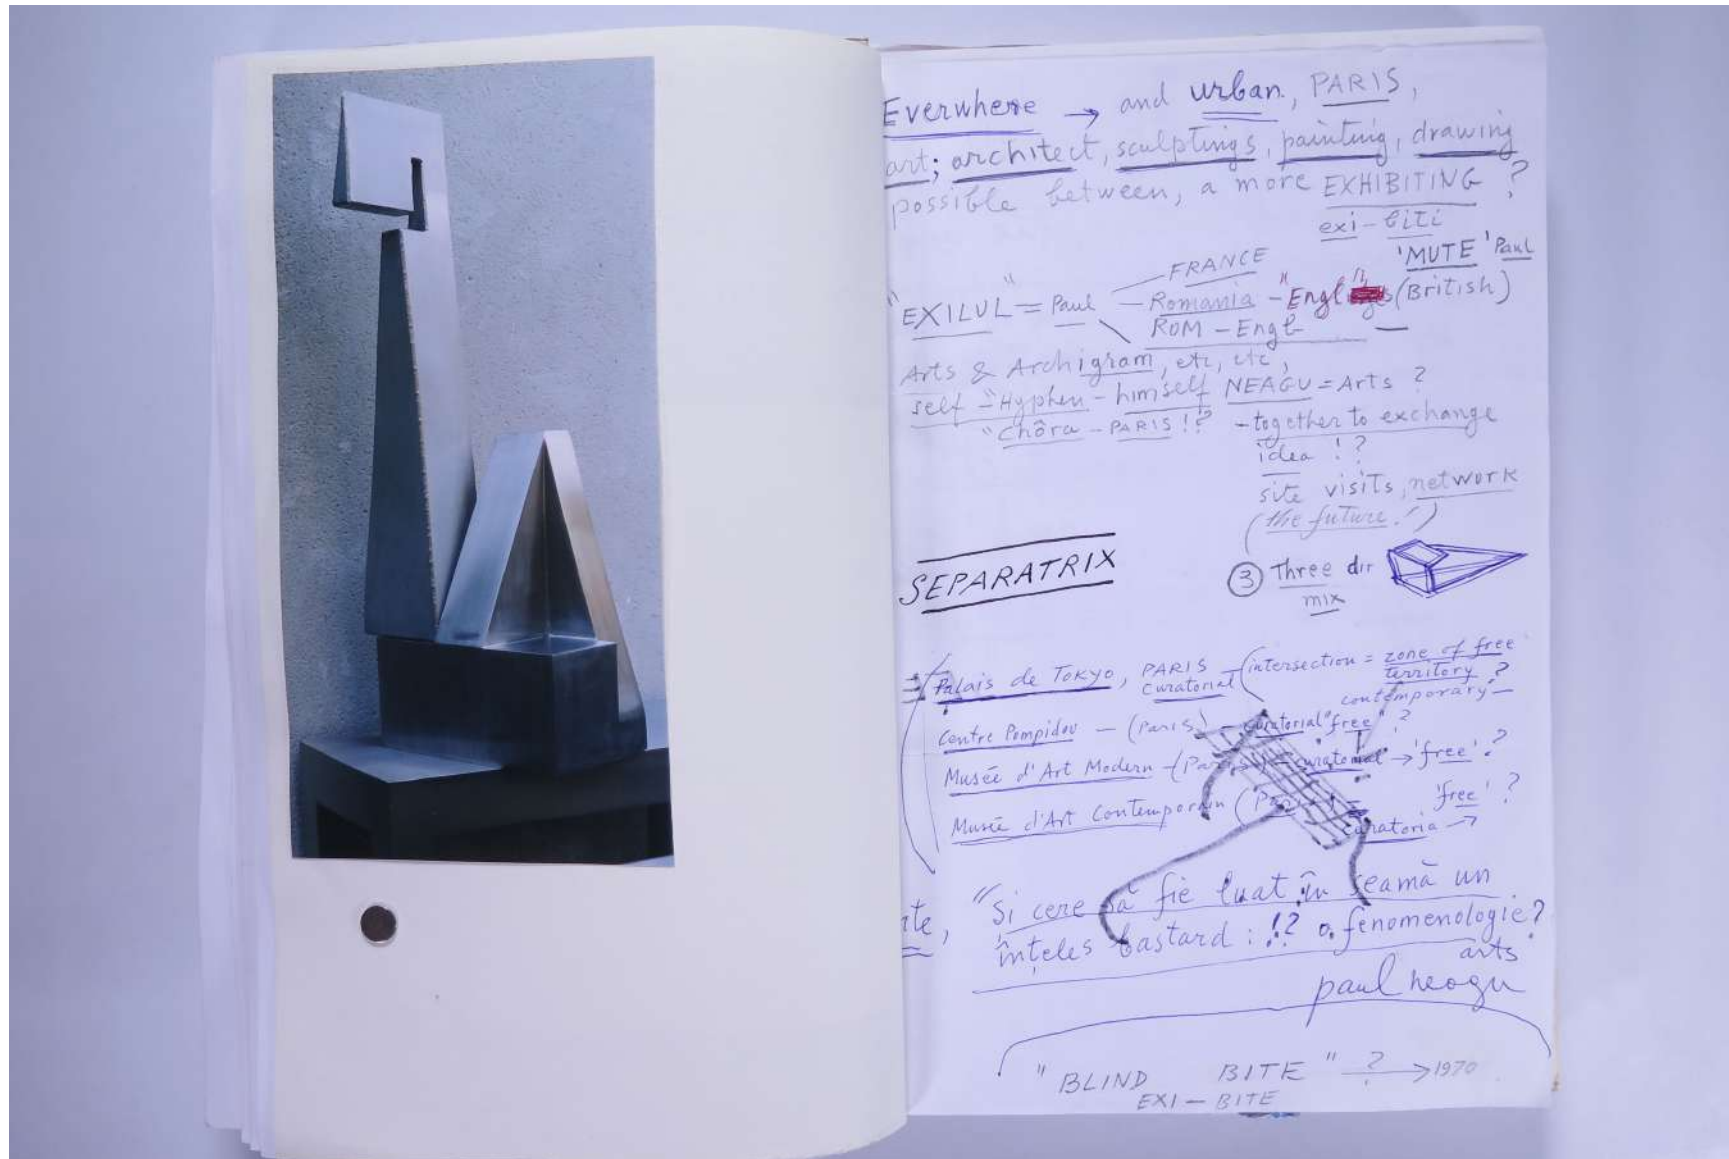 Everwhere → and urban, PARIS,
art; architect, sculptings, painting, drawing
possible between, a more EXHIBITING ?
exi-biti
'MUTE' Paul
FRANCE
"EXILUL" = Paul — Romania - "Engl (British)
ROM - Engl
Arts & Archigram, etc, etc,
self - "Hyphen - himself NEAGU = Arts ?
"Chôra - PARIS !? - together to exchange
idea !?
site visits, network
(the future!)
SEPARATRIX
③ Three dir
mix
Palais de Tokyo, PARIS (intersection = zone of free
curatorial territory ?
contemporary -
Centre Pompidou - (Paris) - curatorial "free" ?
Musée d'Art Modern - (Paris) - curatorial → 'free' ?
Musée d'Art Contemporain (Par 'free' ?
curatoria →
te, "Și cere să fie luat în seamă un
înțeles bastard : !? o fenomenologie ?
arts
paul neagu
"BLIND BITE" ? → 1970
EXI - BITE